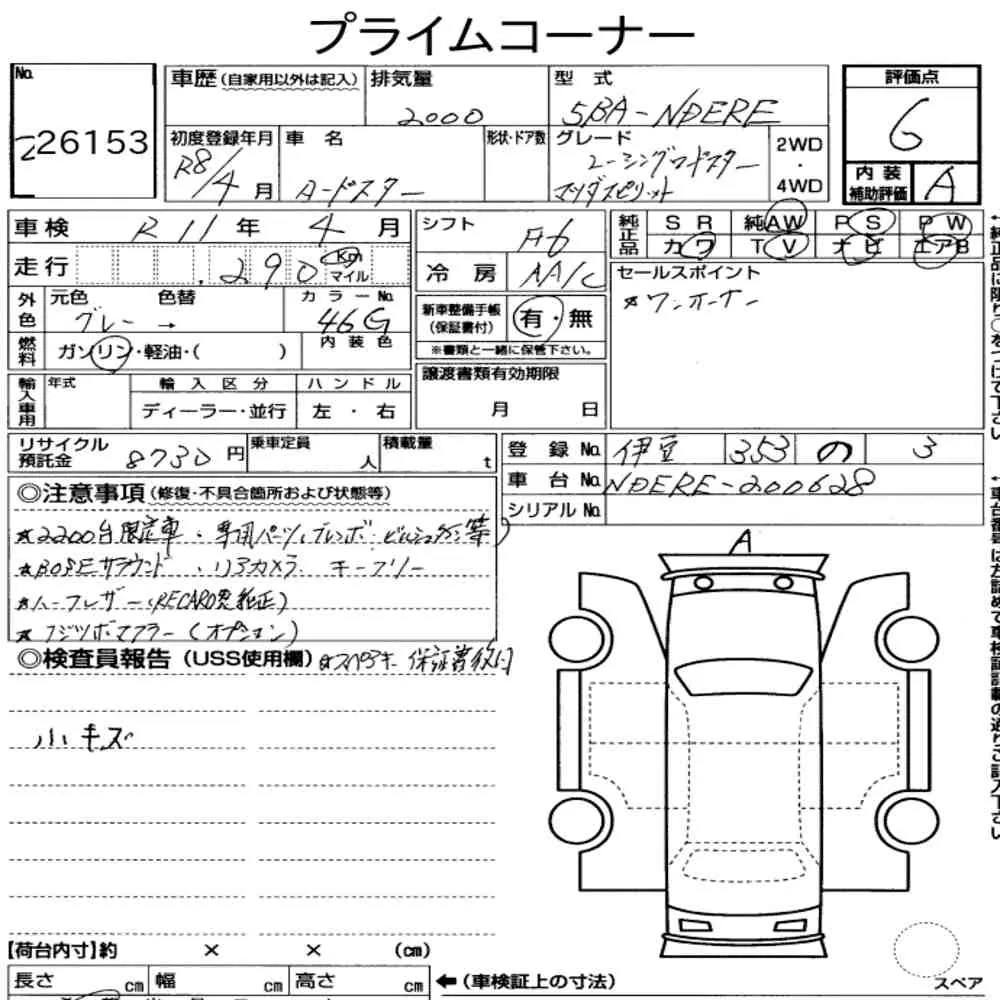 プライムコーナー
No.
26153
車歴 (自家用以外は記入)
排気量
2000
型式
5BA-NDERE
評価点
6
内装補助評価
A
初度登録年月
R8/4 月
車名
ロードスター
形状・ドア数
グレード
マツダスピリット
レーシングロードスター
2WD
・
4WD
車検 R11 年 4 月
走行 290 Km マイル
シフト F6
冷房 AA/C
純正品
SR 純AW PS PW
カワ TV ナビ エアB
セールスポイント
★ワンオーナー
外色
元色 色替
グレー →
カラーNo.
46G
燃料
ガソリン・軽油・( )
内装色
新車整備手帳 (保証書付)
有・無
※書類と一緒に保管下さい。
輸入車用
年式
輸入区分
ディーラー・並行
ハンドル
左・右
譲渡書類有効期限
月 日
リサイクル預託金 8730 円
乗車定員 人
積載量 t
登録No. 伊豆 353 の 3
車台No. NDERE-200628
シリアルNo.
◎注意事項 (修復・不具合箇所および状態等)
★2200台限定車・専用パーツ(ブレンボ・ビルシュタイン等)
★BOSEサラウンド・リアカメラ キーフリー
★ハーフレザー(RECARO製純正)
★フジツボマフラー(オプション)
◎検査員報告 (USS使用欄) ★スペアキー 保証書後日
小キズ
A
【荷台内寸】約 × × (cm)
長さ cm 幅 cm 高さ cm
←(車検証上の寸法)
スペア
↑純正品に限り○をつけて下さい
↑車台番号は左詰めで車検証記載の通りご記入下さい